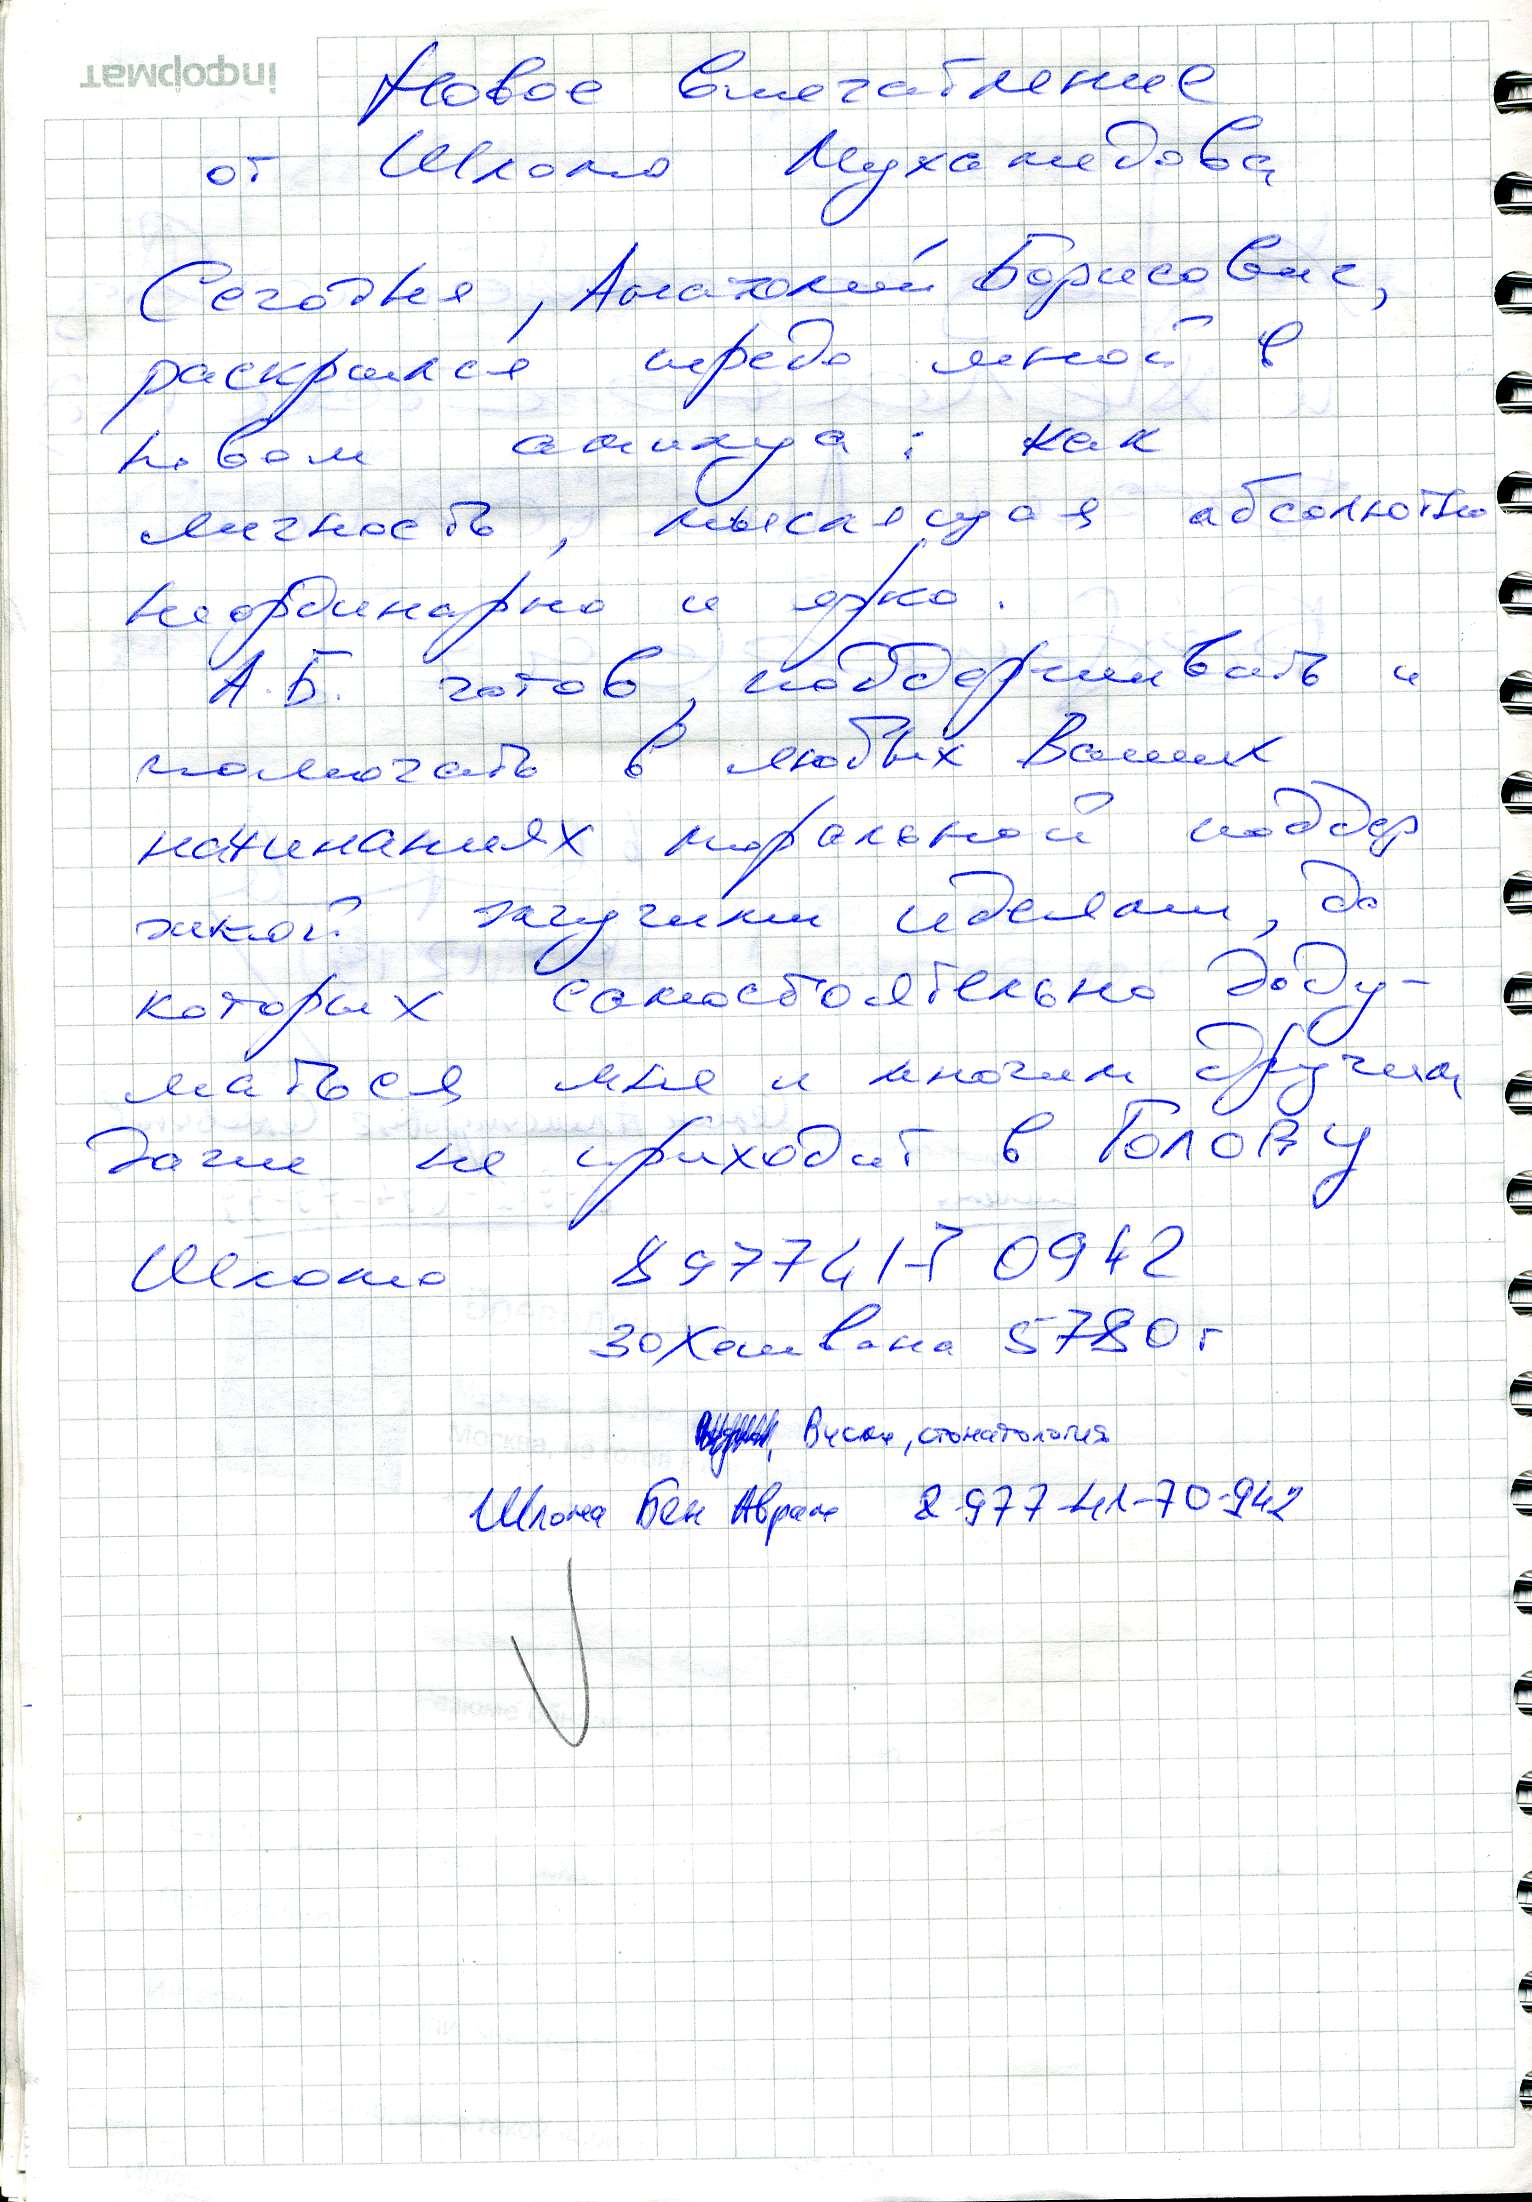 інформат
Новое впечатление
от Шломо Мухамедова
Сегодня, Анатолий Борисович,
раскрылся передо мной в
новом амплуа: как
личность, мыслящая абсолютно
неординарно и ярко.
А.Б. готов, поддерживать и
помогать в любых Ваших
начинаниях моральной поддер
жкой жгучими идеями, до
которых самостоятельно доду-
маться мне и многим другим
даже не приходит в голову
Шломо 8977417 0942
30 Хешвана 5780 г
стоматология
Шломо Бен Аврам 8-977-41-70-942